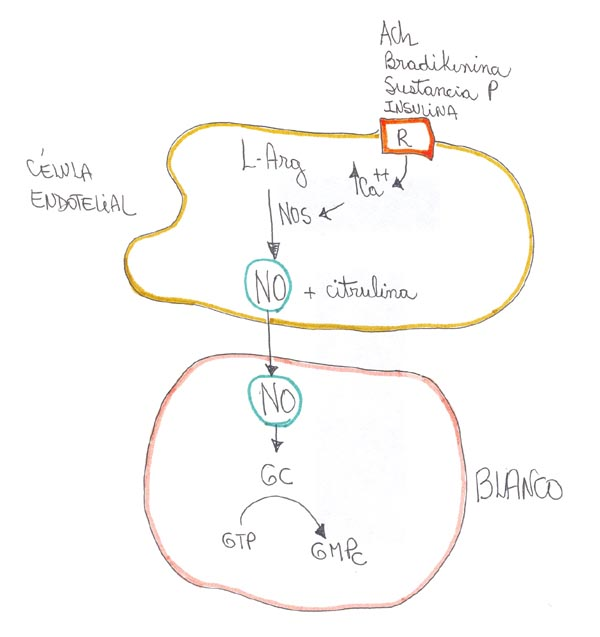 Ach
Bradikinina
Sustancia P
INSULINA
R
CÉLULA
ENDOTELIAL
L-Arg
↑Ca++
NOS
NO + citrulina
NO
GC
GTP
GMPc
BLANCO